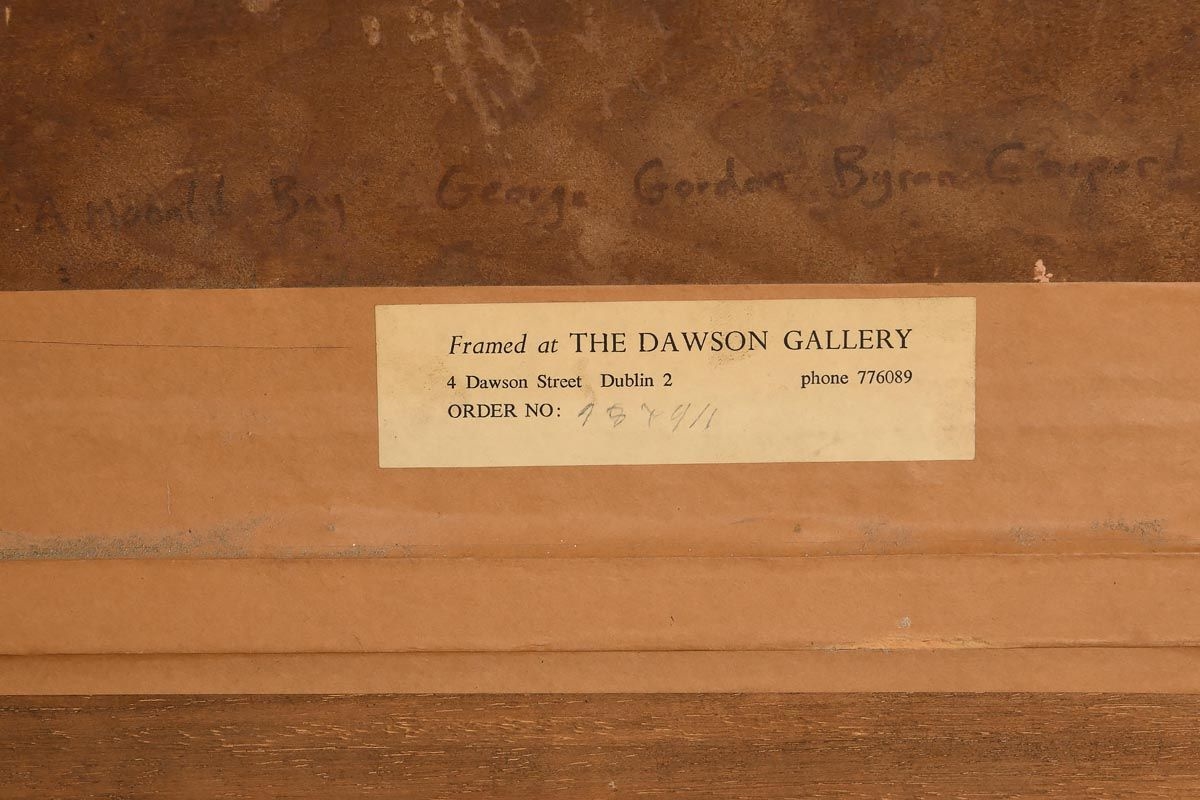 Bay George Gordon Byron Cooper
Framed at THE DAWSON GALLERY
4 Dawson Street Dublin 2 phone 776089
ORDER NO: